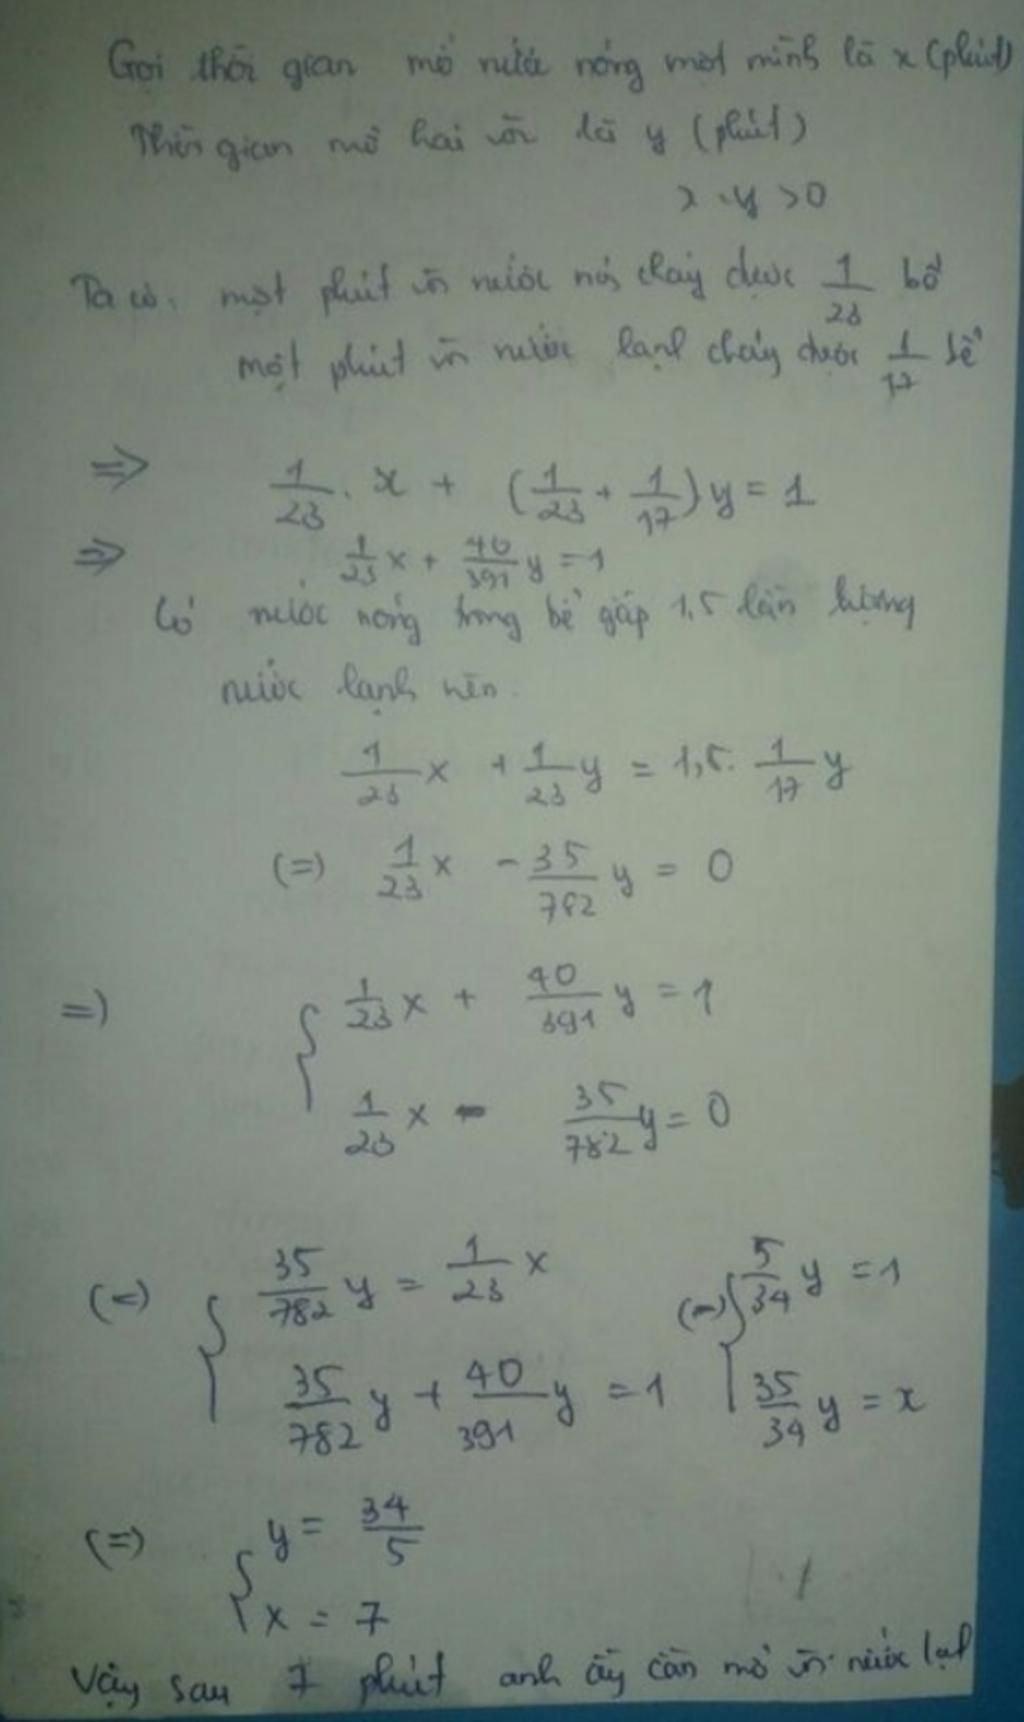 Gọi thời gian mở nước nóng một mình là x (phút)
Thời gian mở hai vòi là y (phút)
x, y > 0
Ta có: một phút vòi nước nóng chảy được 1/23 bể
một phút vòi nước lạnh chảy được 1/17 bể
=> 1/23 . x + (1/23 + 1/17) y = 1
=> 1/23 x + 40/391 y = 1
Có nước nóng trong bể gấp 1,5 lần lượng
nước lạnh nên.
1/23 x + 1/23 y = 1,5 . 1/17 y
(=) 1/23 x - 35/782 y = 0
=) { 1/23 x + 40/391 y = 1
1/23 x - 35/782 y = 0
(=) { 35/782 y = 1/23 x (=) { 5/34 y = 1
35/782 y + 40/391 y = 1 35/34 y = x
(=) { y = 34/5
x = 7
Vậy sau 7 phút anh ấy cần mở vòi nước lạnh